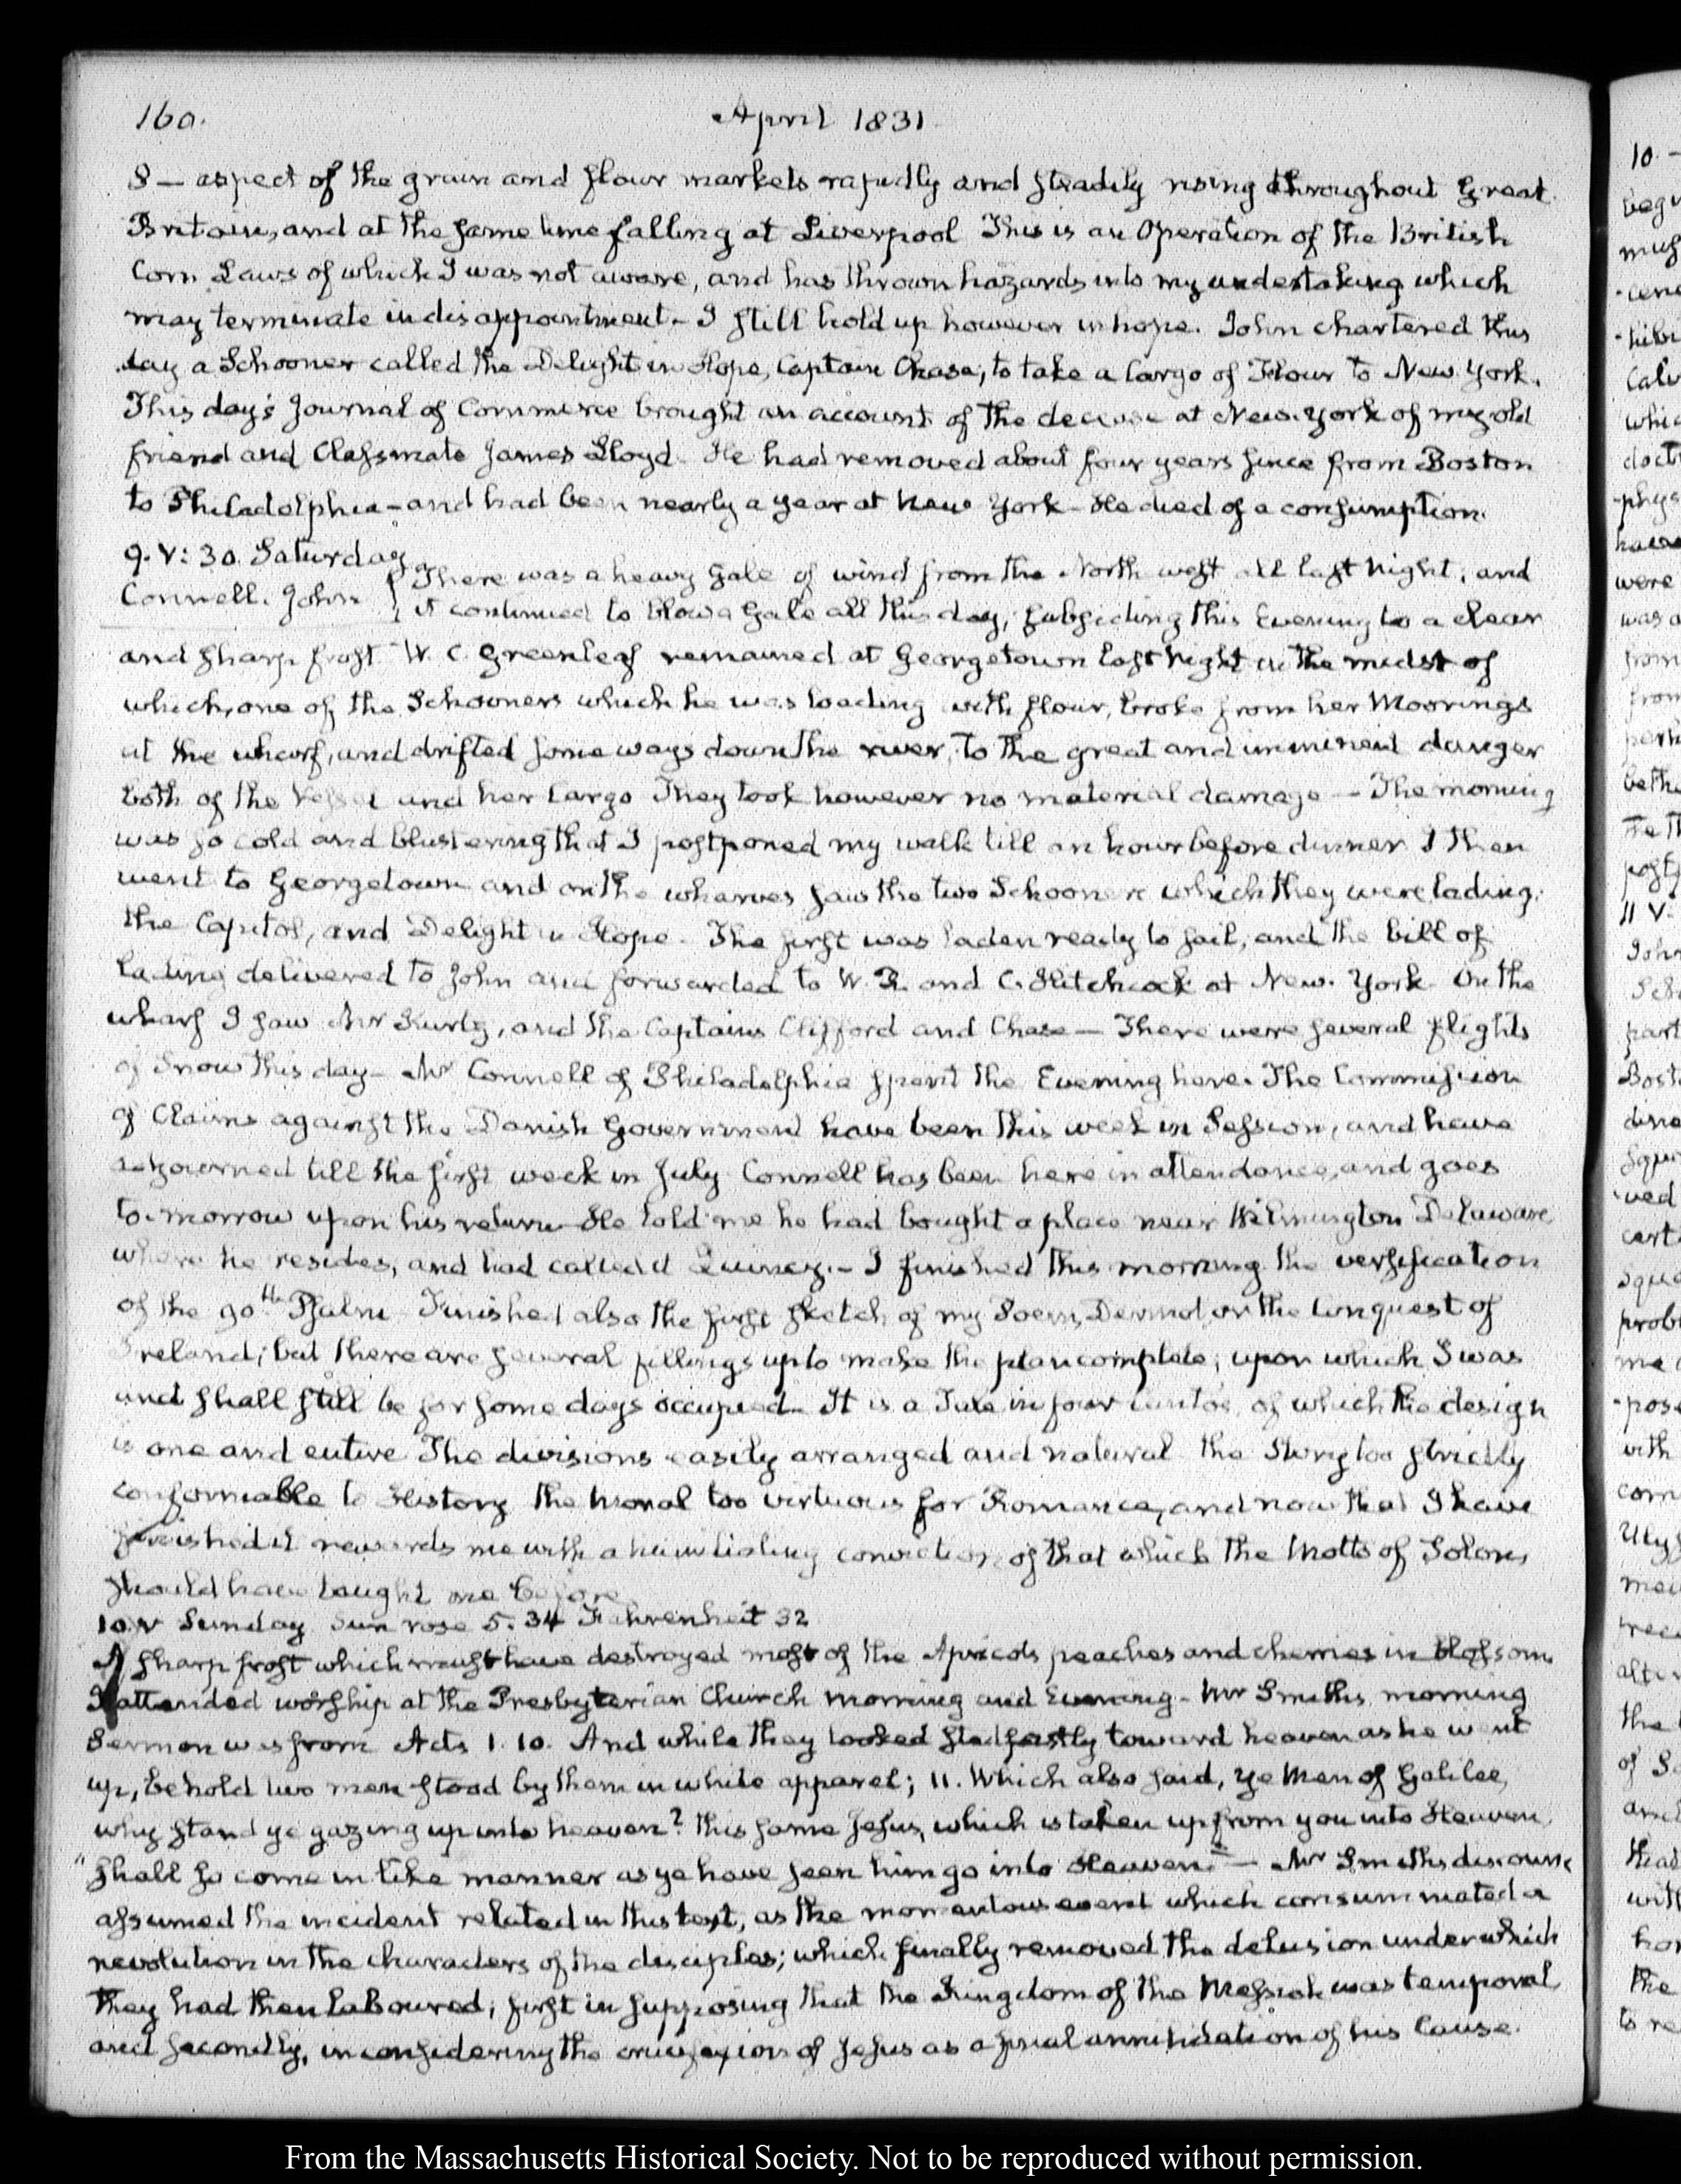 160.
April 1831.
8 — aspect of the grain and flour markets rapidly and steadily rising throughout Great
Britain, and at the same time falling at Liverpool This is an Operation of the British
Corn Laws of which I was not aware, and has thrown hazards into my undertaking which
may terminate in disappointment. I still hold up however in hope. John chartered this
day a Schooner called the Delight in Hope, Captain Chase, to take a Cargo of Flour to New York.
This day's Journal of Commerce brought an account of the decease at New-York of my old
friend and Classmate James Lloyd. He had removed about four years since from Boston
to Philadelphia—and had been nearly a year at New York—He died of a consumption.
9. V: 30. Saturday
Connell. John
There was a heavy Gale of wind from the North west all last Night, and
it continued to blow a Gale all this day, subsiding this Evening to a clear
and sharp frost. W. C. Greenleaf remained at Georgetown last Night in the midst of
which, one of the Schooners which he was loading with flour, broke from her Moorings
at the wharf, and drifted some ways down the river, to the great and imminent danger
both of the Vessel and her Cargo They took however no material damage — The morning
was so cold and blustering that I postponed my walk till an hour before dinner I then
went to Georgetown and on the wharves saw the two Schooners which they were lading;
the Capitol, and Delight in Hope. The first was laden ready to sail, and the bill of
lading delivered to John and forwarded to W. R. and C. Hitchcock at New-York. On the
wharf I saw Mr Kurtz, and the Captains Clifford and Chase — There were several flights
of Snow this day— Mr Connell of Philadelphia spent the Evening here. The Commission
of Claims against the Danish Government have been this week in Session, and have
adjourned till the first week in July Connell has been here in attendance, and goes
to-morrow upon his return He told me he had bought a place near Wilmington Delaware
where he resides, and had called it Quincy.— I finished this morning the versification
of the 90th Psalm Finished also the first sketch of my Poem, Dermot, or the Conquest of
Ireland; but there are several fillings up to make the plan complete; upon which I was
and shall still be for some days occupied. It is a Tale in four Cantos, of which the design
is one and entire The divisions easily arranged and natural the Story too strictly
conformable to History the moral too virtuous for Romance, and now that I have
finished it rewards me with a humiliating conviction of that which the Motto of Solon,
should have taught me before
10. V Sunday Sun rose 5. 34 Fahrenheit 32
A sharp frost which must have destroyed most of the Apricots peaches and cherries in blossom
I attended worship at the Presbyterian Church morning and Evening— Mr Smith's morning
Sermon was from Acts 1. 10. And while they looked stedfastly toward heaven as he went
up, behold two men stood by them in white apparel; 11. Which also said, ye Men of Galilee,
why stand ye gazing up into heaven? this same Jesus, which is taken up from you into Heaven,
"shall so come in like manner as ye have seen him go into Heaven." — Mr Smith's discourse
assumed the incident related in this text, as the momentous event which consummated a
revolution in the characters of the disciples; which finally removed the delusion under which
they had then laboured; first in supposing that the Kingdom of the Messiah was temporal
and secondly, in considering the crucifixion of Jesus as a final annihilation of his Cause.
From the Massachusetts Historical Society. Not to be reproduced without permission.